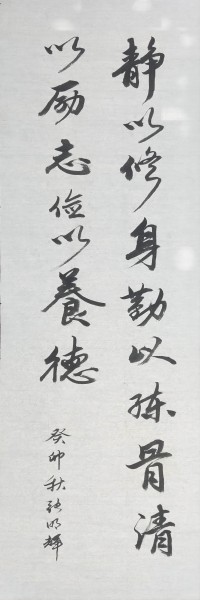 静以修身勤以练骨清
以励志俭以養德
癸卯秋张明辉